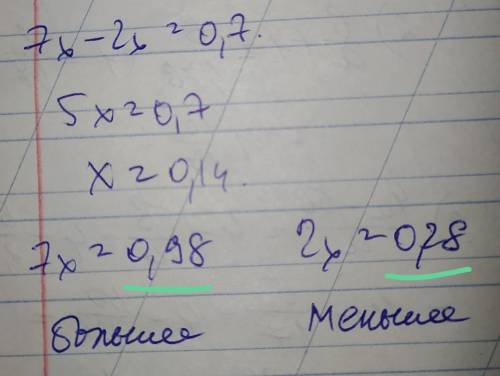 7x - 2x = 0,7.
5x = 0,7
x = 0,14.
7x = 0,98 2x = 0,28
большее меньшее